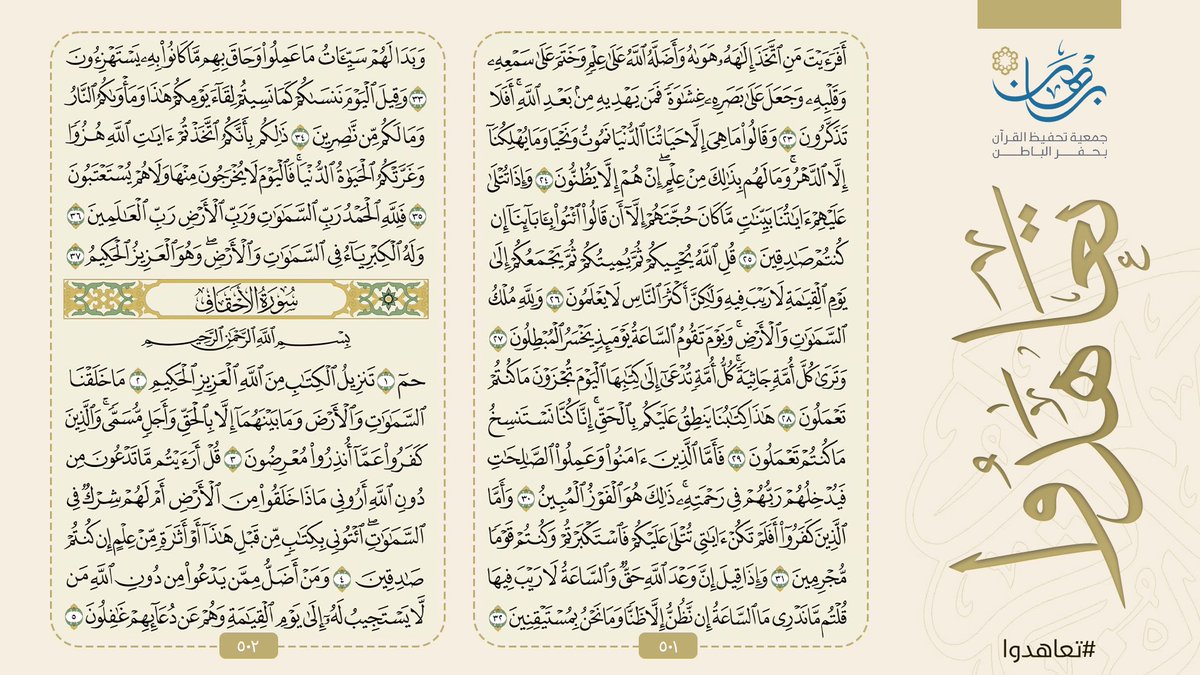 برهان
جمعية تحفيظ القرآن
بحفر الباطن
تعاهدوا
#تعاهدوا
أَفَرَءَيْتَ مَنِ ٱتَّخَذَ إِلَٰهَهُۥ هَوَىٰهُ وَأَضَلَّهُ ٱللَّهُ عَلَىٰ عِلْمٍ وَخَتَمَ عَلَىٰ سَمْعِهِۦ
وَقَلْبِهِۦ وَجَعَلَ عَلَىٰ بَصَرِهِۦ غِشَٰوَةً فَمَن يَهْدِيهِ مِنۢ بَعْدِ ٱللَّهِۚ أَفَلَا
تَذَكَّرُونَ ٢٣ وَقَالُوا۟ مَا هِىَ إِلَّا حَيَاتُنَا ٱلدُّنْيَا نَمُوتُ وَنَحْيَا وَمَا يُهْلِكُنَآ
إِلَّا ٱلدَّهْرُۚ وَمَا لَهُم بِذَٰلِكَ مِنْ عِلْمٍۖ إِنْ هُمْ إِلَّا يَظُنُّونَ ٢٤ وَإِذَا تُتْلَىٰ
عَلَيْهِمْ ءَايَٰتُنَا بَيِّنَٰتٍ مَّا كَانَ حُجَّتَهُمْ إِلَّآ أَن قَالُوا۟ ٱئْتُوا۟ بِـَٔابَآئِنَآ إِن
كُنتُمْ صَٰدِقِينَ ٢٥ قُلِ ٱللَّهُ يُحْيِيكُمْ ثُمَّ يُمِيتُكُمْ ثُمَّ يَجْمَعُكُمْ إِلَىٰ
يَوْمِ ٱلْقِيَٰمَةِ لَا رَيْبَ فِيهِ وَلَٰكِنَّ أَكْثَرَ ٱلنَّاسِ لَا يَعْلَمُونَ ٢٦ وَلِلَّهِ مُلْكُ
ٱلسَّمَٰوَٰتِ وَٱلْأَرْضِۚ وَيَوْمَ تَقُومُ ٱلسَّاعَةُ يَوْمَئِذٍ يَخْسَرُ ٱلْمُبْطِلُونَ ٢٧
وَتَرَىٰ كُلَّ أُمَّةٍ جَاثِيَةًۚ كُلُّ أُمَّةٍ تُدْعَىٰٓ إِلَىٰ كِتَٰبِهَا ٱلْيَوْمَ تُجْزَوْنَ مَا كُنتُمْ
تَعْمَلُونَ ٢٨ هَٰذَا كِتَٰبُنَا يَنطِقُ عَلَيْكُم بِٱلْحَقِّۚ إِنَّا كُنَّا نَسْتَنسِخُ
مَا كُنتُمْ تَعْمَلُونَ ٢٩ فَأَمَّا ٱلَّذِينَ ءَامَنُوا۟ وَعَمِلُوا۟ ٱلصَّٰلِحَٰتِ
فَيُدْخِلُهُمْ رَبُّهُمْ فِى رَحْمَتِهِۦۚ ذَٰلِكَ هُوَ ٱلْفَوْزُ ٱلْمُبِينُ ٣٠ وَأَمَّا
ٱلَّذِينَ كَفَرُوٓا۟ أَفَلَمْ تَكُنْ ءَايَٰتِى تُتْلَىٰ عَلَيْكُمْ فَٱسْتَكْبَرْتُمْ وَكُنتُمْ قَوْمًا
مُّجْرِمِينَ ٣١ وَإِذَا قِيلَ إِنَّ وَعْدَ ٱللَّهِ حَقٌّ وَٱلسَّاعَةُ لَا رَيْبَ فِيهَا
قُلْتُم مَّا نَدْرِى مَا ٱلسَّاعَةُ إِن نَّظُنُّ إِلَّا ظَنًّا وَمَا نَحْنُ بِمُسْتَيْقِنِينَ ٣٢
٥٠١
وَبَدَا لَهُمْ سَيِّـَٔاتُ مَا عَمِلُوا۟ وَحَاقَ بِهِم مَّا كَانُوا۟ بِهِۦ يَسْتَهْزِءُونَ
٣٣ وَقِيلَ ٱلْيَوْمَ نَنسَىٰكُمْ كَمَا نَسِيتُمْ لِقَآءَ يَوْمِكُمْ هَٰذَا وَمَأْوَىٰكُمُ ٱلنَّارُ
وَمَا لَكُم مِّن نَّٰصِرِينَ ٣٤ ذَٰلِكُم بِأَنَّكُمُ ٱتَّخَذْتُمْ ءَايَٰتِ ٱللَّهِ هُزُوًا
وَغَرَّتْكُمُ ٱلْحَيَوٰةُ ٱلدُّنْيَاۚ فَٱلْيَوْمَ لَا يُخْرَجُونَ مِنْهَا وَلَا هُمْ يُسْتَعْتَبُونَ
٣٥ فَلِلَّهِ ٱلْحَمْدُ رَبِّ ٱلسَّمَٰوَٰتِ وَرَبِّ ٱلْأَرْضِ رَبِّ ٱلْعَٰلَمِينَ ٣٦
وَلَهُ ٱلْكِبْرِيَآءُ فِى ٱلسَّمَٰوَٰتِ وَٱلْأَرْضِۖ وَهُوَ ٱلْعَزِيزُ ٱلْحَكِيمُ ٣٧
سُورَةُ الأَحْقَافِ
بِسْمِ ٱللَّهِ ٱلرَّحْمَٰنِ ٱلرَّحِيمِ
حمٓ ١ تَنزِيلُ ٱلْكِتَٰبِ مِنَ ٱللَّهِ ٱلْعَزِيزِ ٱلْحَكِيمِ ٢ مَا خَلَقْنَا
ٱلسَّمَٰوَٰتِ وَٱلْأَرْضَ وَمَا بَيْنَهُمَآ إِلَّا بِٱلْحَقِّ وَأَجَلٍ مُّسَمًّىۚ وَٱلَّذِينَ
كَفَرُوا۟ عَمَّآ أُنذِرُوا۟ مُعْرِضُونَ ٣ قُلْ أَرَءَيْتُم مَّا تَدْعُونَ مِن
دُونِ ٱللَّهِ أَرُونِى مَاذَا خَلَقُوا۟ مِنَ ٱلْأَرْضِ أَمْ لَهُمْ شِرْكٌ فِى
ٱلسَّمَٰوَٰتِۖ ٱئْتُونِى بِكِتَٰبٍ مِّن قَبْلِ هَٰذَآ أَوْ أَثَٰرَةٍ مِّنْ عِلْمٍ إِن كُنتُمْ
صَٰدِقِينَ ٤ وَمَنْ أَضَلُّ مِمَّن يَدْعُوا۟ مِن دُونِ ٱللَّهِ مَن
لَّا يَسْتَجِيبُ لَهُۥٓ إِلَىٰ يَوْمِ ٱلْقِيَٰمَةِ وَهُمْ عَن دُعَآئِهِمْ غَٰفِلُونَ ٥
٥٠٢